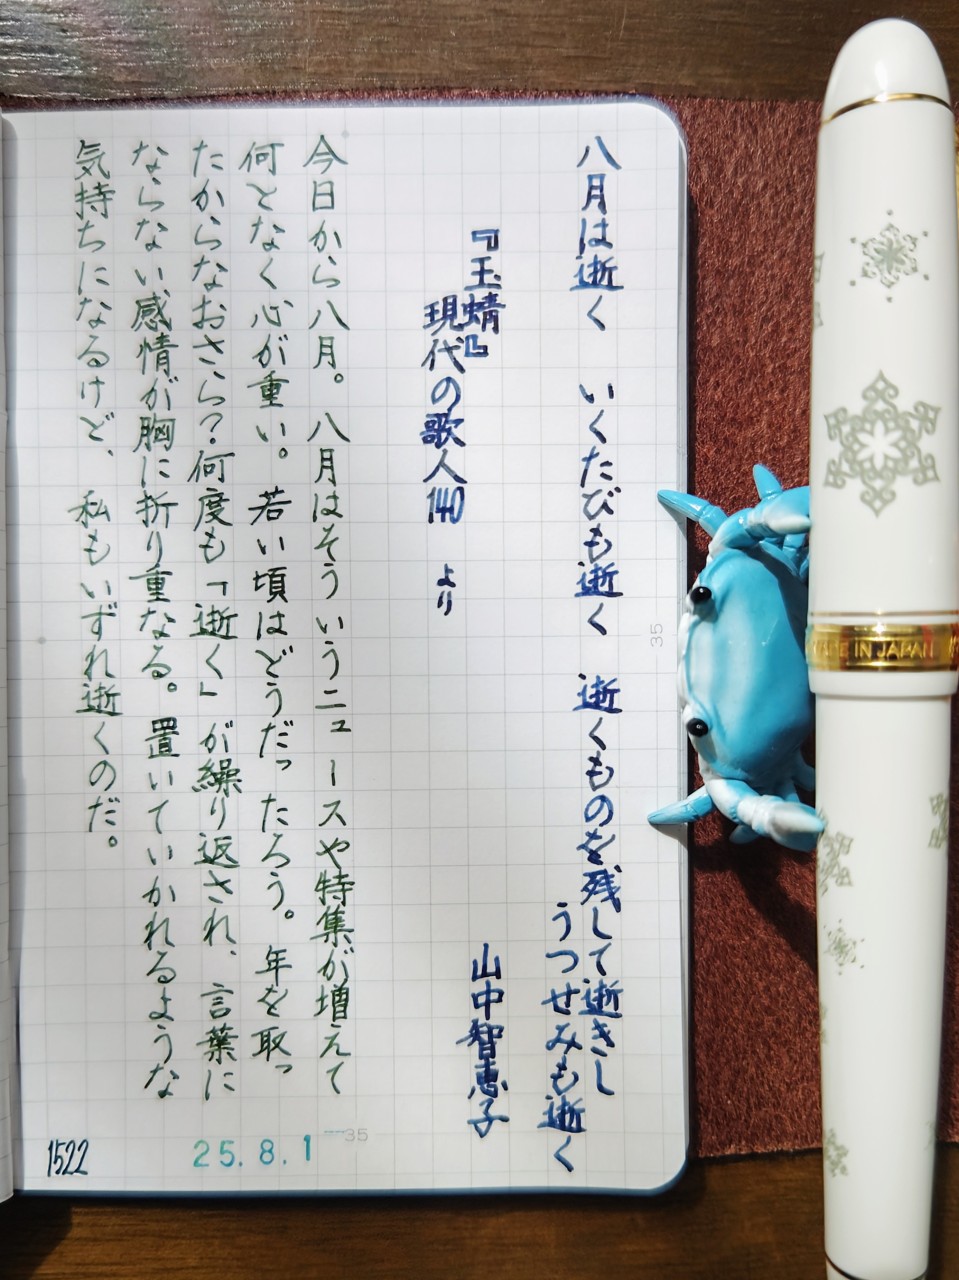 八月は逝く　いくたびも逝く　逝くものを残して逝きし
うつせみも逝く
山中智恵子
『玉蜻』
現代の歌人140　より
今日から八月。八月はそういうニュースや特集が増えて
何となく心が重い。若い頃はどうだったろう。年を取っ
たからなおさら？何度も「逝く」が繰り返され、言葉に
ならない感情が胸に折り重なる。置いていかれるような
気持ちになるけど、私もいずれ逝くのだ。
25.8.1
1522
35
35
MADE IN JAPAN